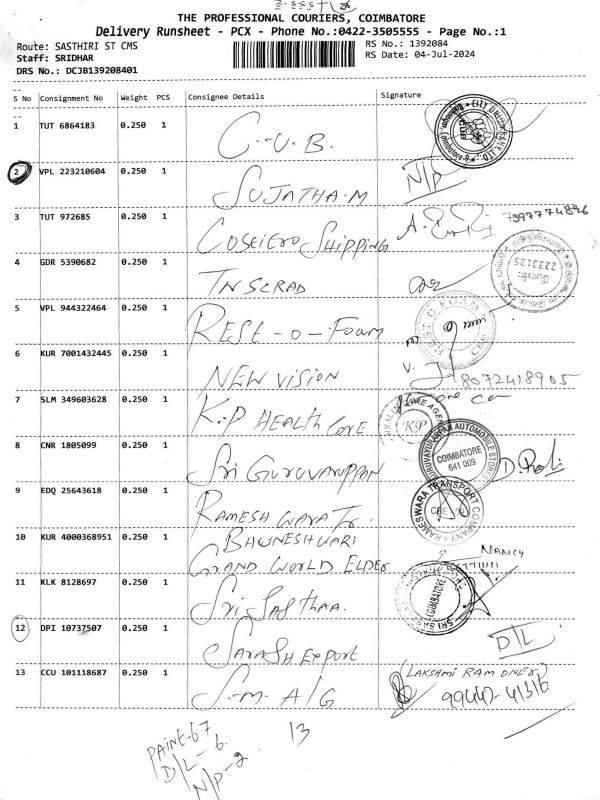 THE PROFESSIONAL COURIERS, COIMBATORE
Delivery Runsheet - PCX - Phone No.:0422-3505555 - Page No.:1
Route: SASTHIRI ST CMS
Staff: SRIDHAR
DRS No.: DCJB139208401
RS No.: 1392084
RS Date: 04-Jul-2024
S No Consignment No Weight PCS Consignee Details Signature
1 TUT 6864183 0.250 1 C.U.B. CITY UNION BANK LTD.
2 VPL 223210604 0.250 1 SUJATHA.M N/P
3 TUT 972685 0.250 1 COSEIERO SHIPPING A. 7397774896
4 GDR 5390682 0.250 1 TNSCRAD 2223125
5 VPL 944322464 0.250 1 REST-O-FOAM REST O FOAM
6 KUR 7001432445 0.250 1 NEW VISION V. 8072418905
7 SLM 349603628 0.250 1 K.P HEALTH CARE KP
8 CNR 1805099 0.250 1 Sri GURUVARUPPAN GURUVAYURAPPAN AUTOMOBILE STORES COIMBATORE 641 009
9 EDQ 25643618 0.250 1 RAMESHWARA Tr. RAMESWARA TRANSPORT COMPANY
10 KUR 4000368951 0.250 1 BHWNESHWARI
GRAND WORLD ELDER NANCY
11 KLK 8128697 0.250 1 Sri SASTHAA. SRI SAS COIMBATORE
12 DPI 10737507 0.250 1 SARASH EXPORT D/L
13 CCU 101118687 0.250 1 S.M. A/G (LAKSHMI RAM ONER)
99442-41316
PAINE-67
D/L-6
N/P-2
13